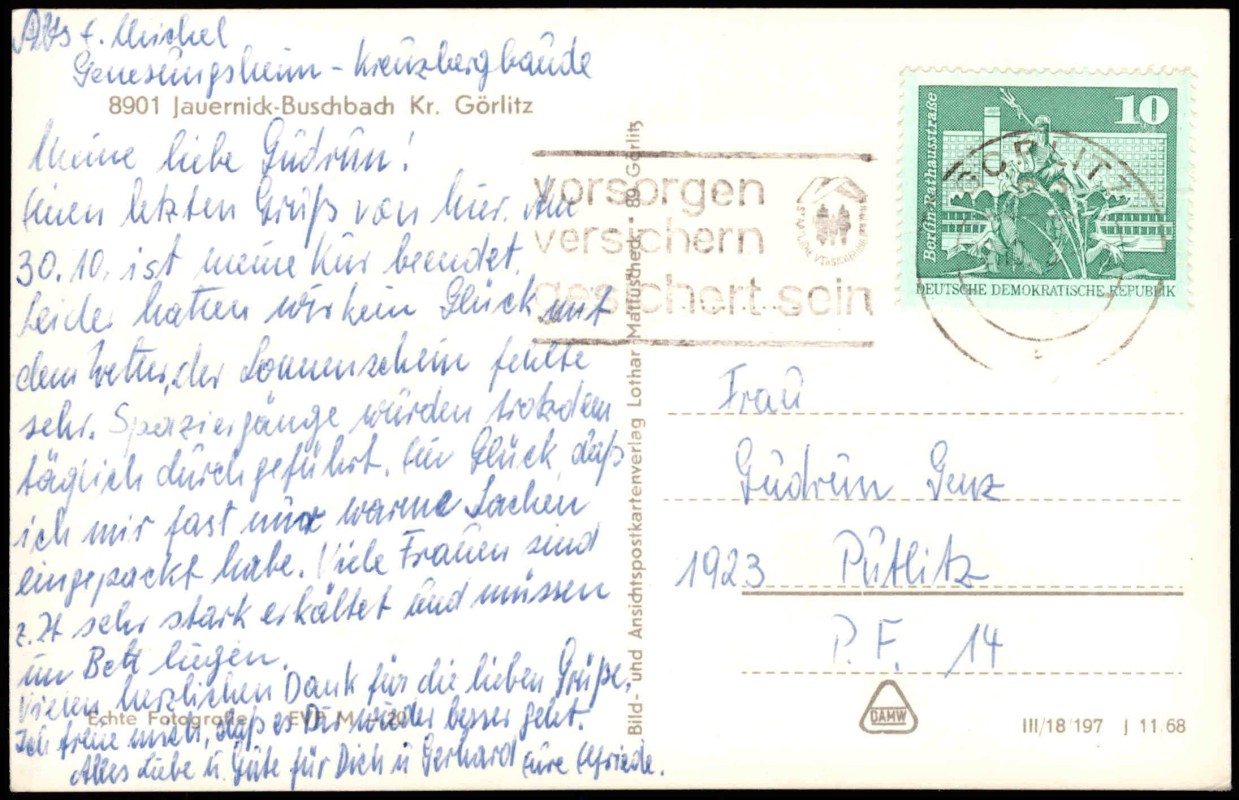 Abs. E. Michel
Genesungsheim - Kreuzbergbaude
8901 Jauernick-Buschbach Kr. Görlitz
Meine liebe Gudrun!
Einen letzten Gruß von hier. Am
30.10. ist meine Kur beendet.
Leider hatten wir kein Glück mit
dem Wetter, der Sonnenschein fehlte
sehr. Spaziergänge wurden trotzdem
täglich durchgeführt. Ein Glück, daß
ich mir fast nur warme Sachen
eingepackt habe. Viele Frauen sind
z. Zt sehr stark erkältet und müssen
im Bett liegen.
Vielen herzlichen Dank für die lieben Grüße.
Echte Fotografie EVP M
Ich freue mich, daß es Dir wieder besser geht.
Alles Liebe u. Gute für Dich u Gerhard Eure Elfriede.
Bild- und Ansichtspostkartenverlag Lothar Mattuscheck, 89 Görlitz
vorsorgen
versichern
gesichert sein
GÖRLITZ
10
Berlin-Rathausstraße
DEUTSCHE DEMOKRATISCHE REPUBLIK
Frau
Gudrun Genz
1923 Putlitz
P.F. 14
DAMW
III/18/197 J 11/68